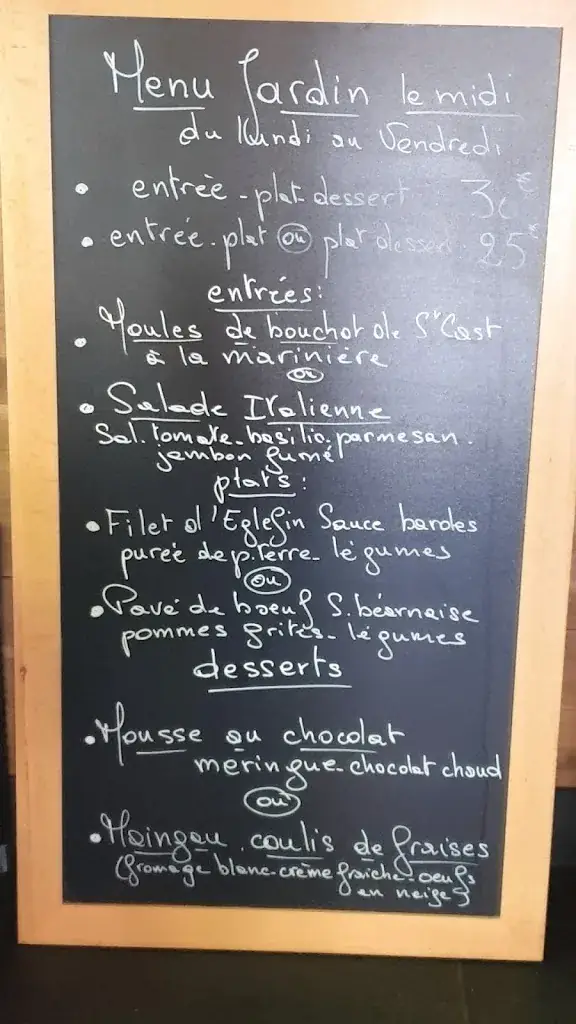 Menu Jardin le midi
du lundi au Vendredi
• entrée - plat - dessert 30€
• entrée - plat ou plat dessert 25€
entrées:
• Moules de bouchot de St Cast
à la marinière
ou
• Salade Italienne
Sal. tomate - basilic - parmesan -
jambon fumé
plats:
• Filet d'Eglefin Sauce
purée de p. terre - légumes
ou
• Pavé de boeuf S. béarnaise
pommes frites - légumes
desserts
• Mousse au chocolat
meringue - chocolat chaud
ou
• Maingau - coulis de fraises
(fromage blanc - crème fraîche - oeufs
en neige)